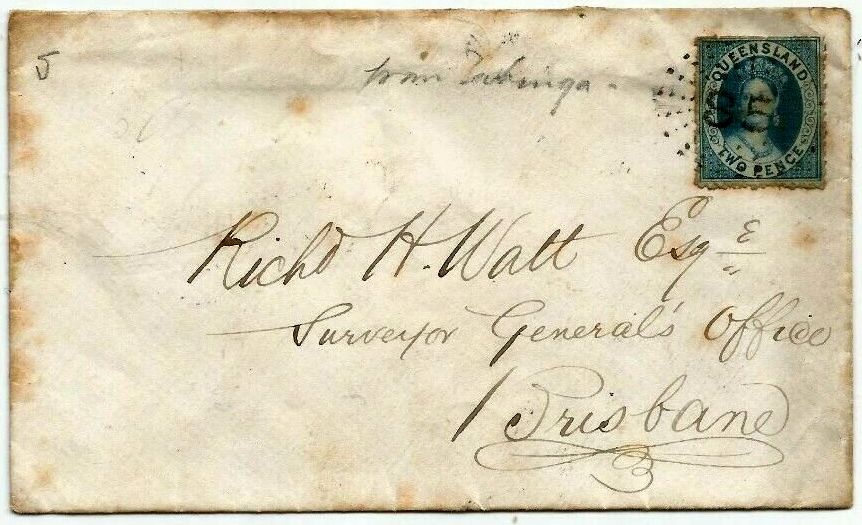 5
from Tabinga.
QUEENSLAND
TWO PENCE
Richd H. Watt Esqe
Surveyor General's Office
Brisbane